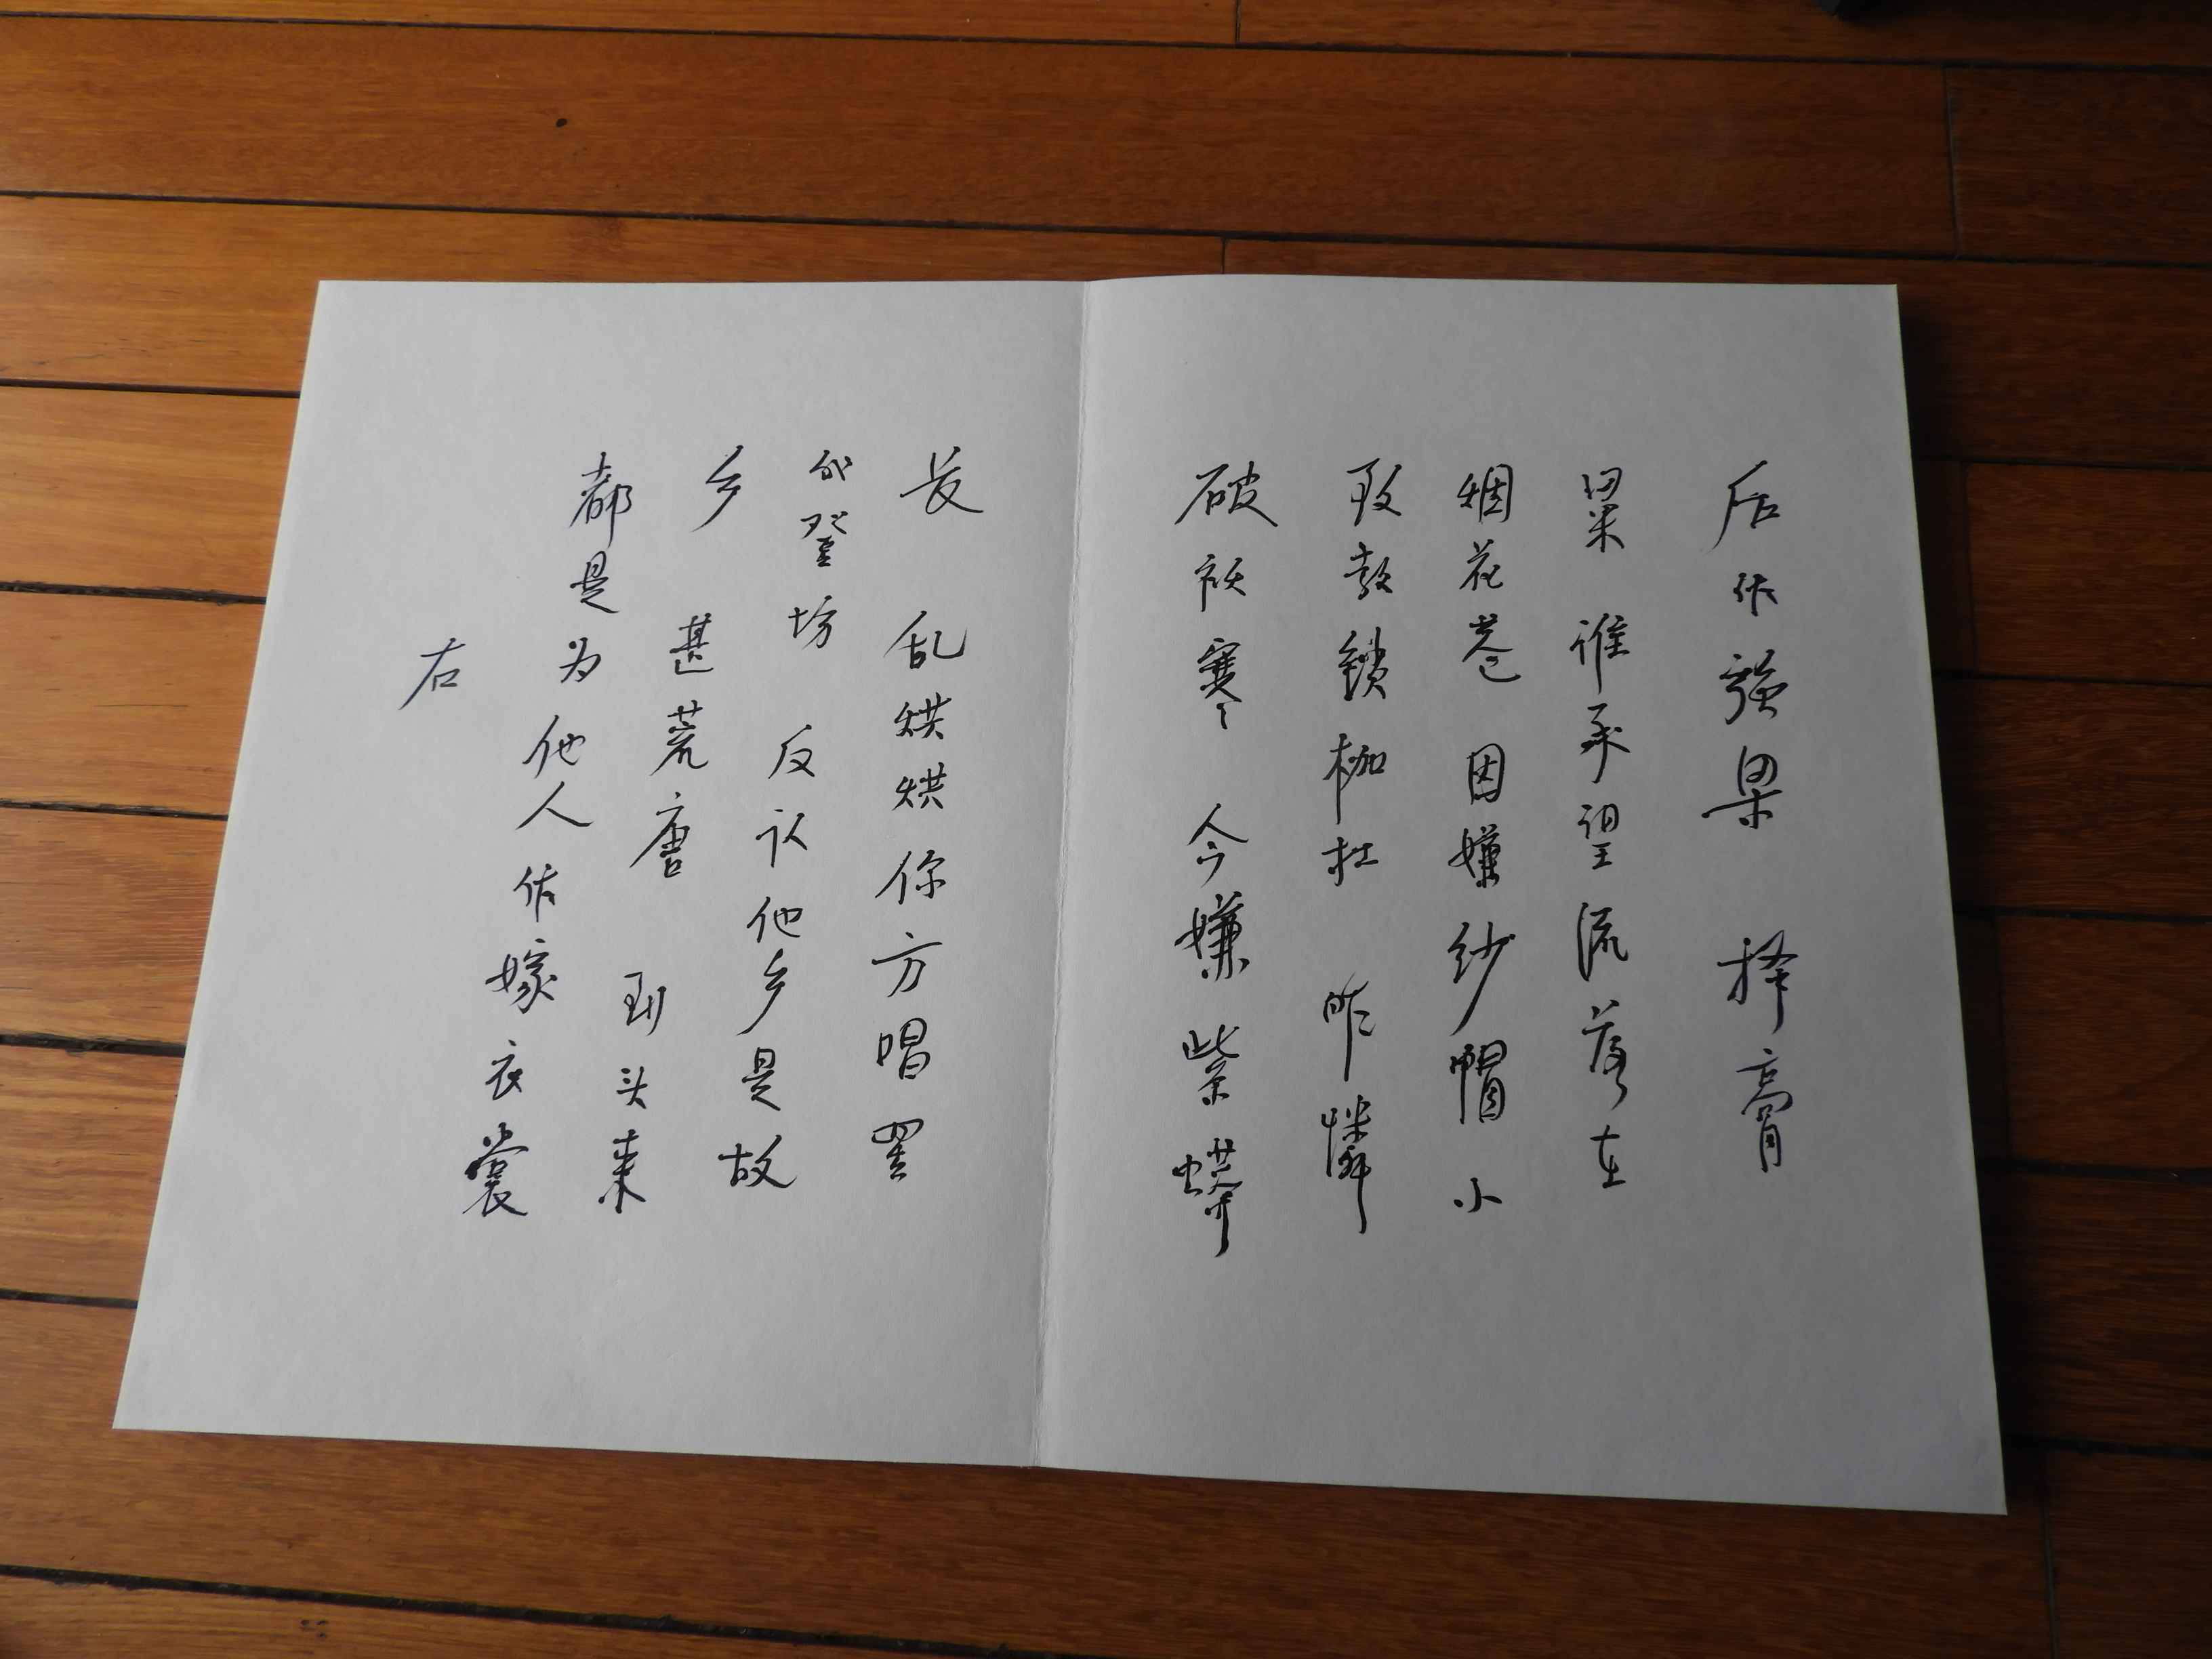 后作强梁 择膏
粱 谁承望流落在
烟花巷 因嫌纱帽小
致锁枷扛 昨怜
破袄寒 今嫌紫蟒
长 乱烘烘你方唱罢
我登场 反认他乡是故
乡 甚荒唐 到头来
都是为他人作嫁衣裳
右